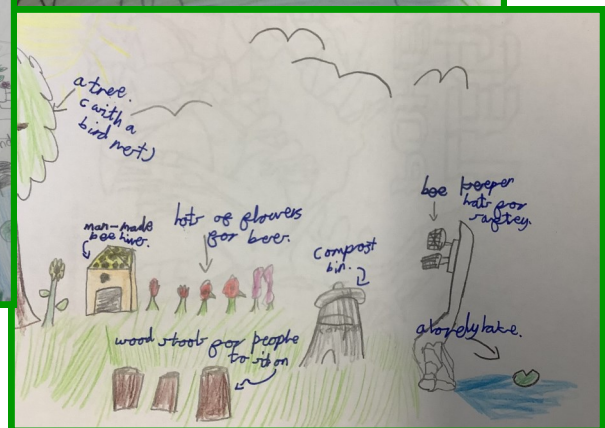 a tree.
(with a
bird nest)
man-made
bee hives.
lots of flowers
for bees.
compost
bin.
bee keeper
hats for
saftey.
wood stools for people
to sit on
a lovely lake.